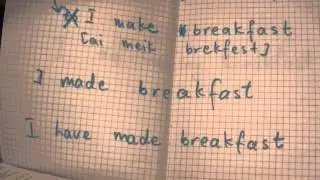 I make breakfast
[ai meik brekfest]
I made breakfast
I have made breakfast